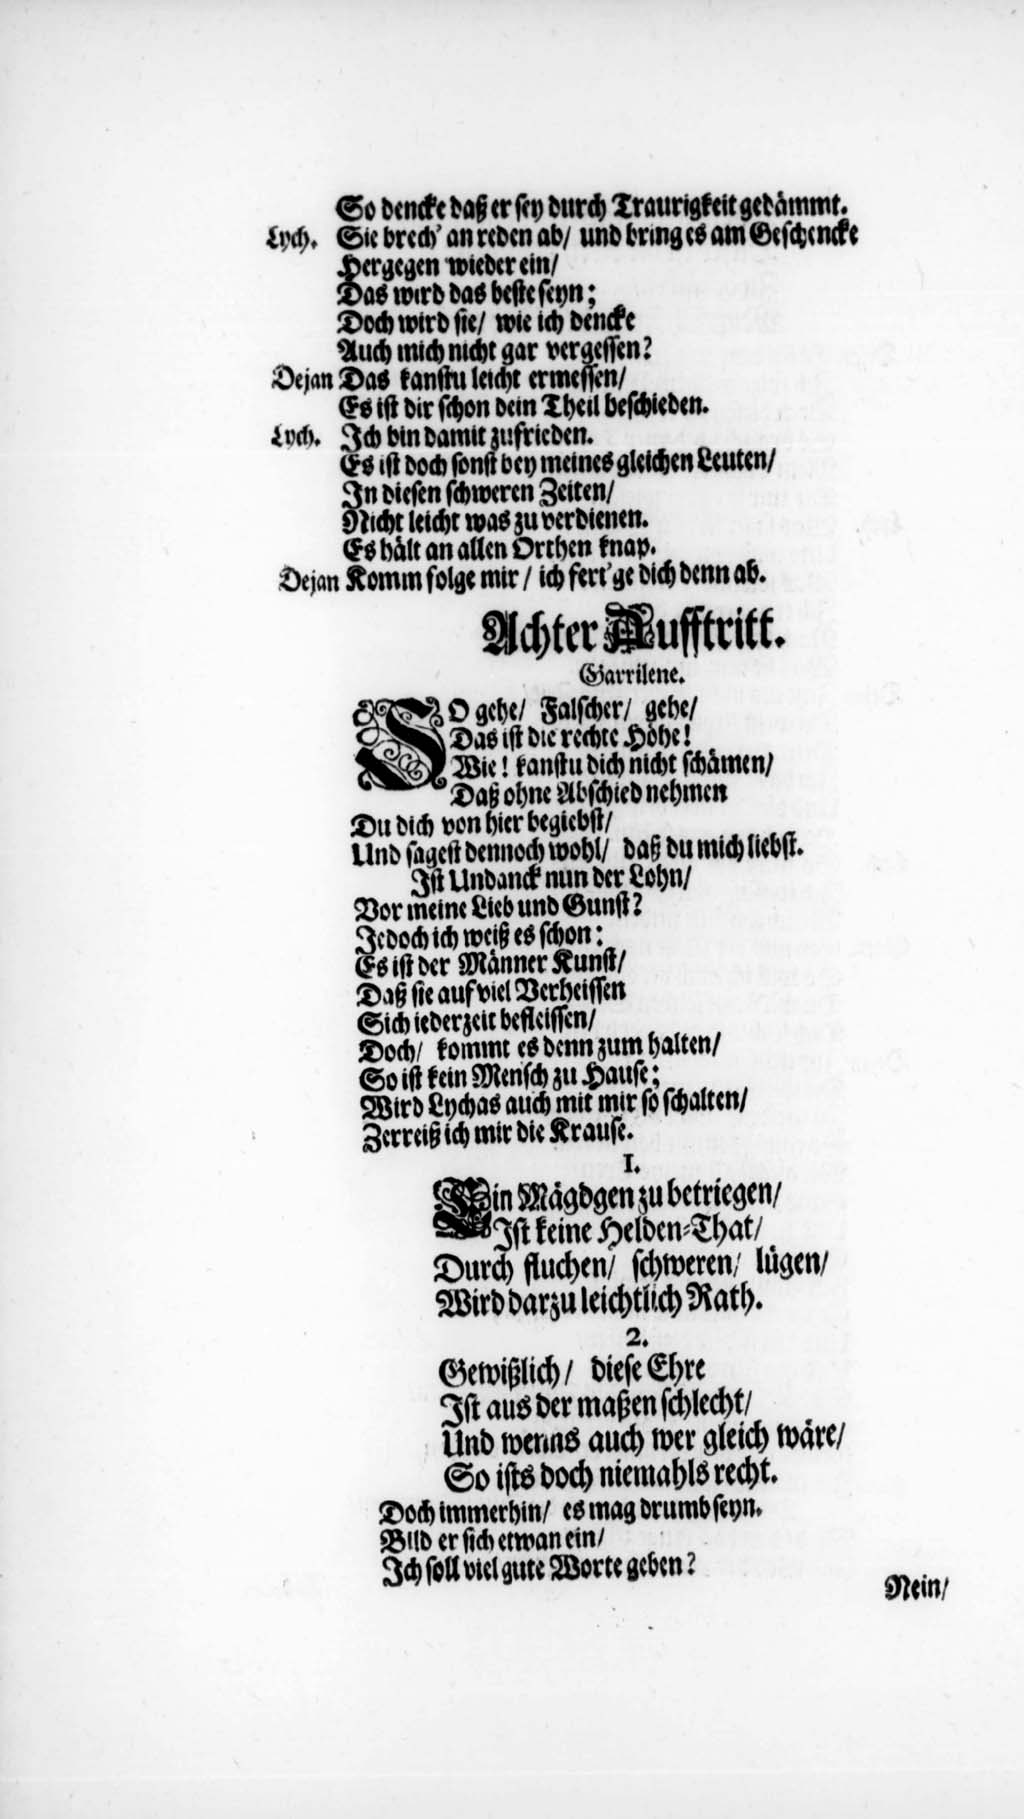 So dencke daß er sey durch Traurigkeit gedämmt.
Lych. Sie brech' an reden ab/ und bring es am Geschencke
Hergegen wieder ein/
Das wird das beste seyn;
Doch wird sie/ wie ich dencke
Auch mich nicht gar vergessen?
Dejan Das kanstu leicht ermessen/
Es ist dir schon dein Theil beschieden.
Lych. Ich bin damit zufrieden.
Es ist doch sonst bey meines gleichen Leuten/
In diesen schweren Zeiten/
Nicht leicht was zu verdienen.
Es hält an allen Orthen knap.
Dejan Komm folge mir/ ich fert'ge dich denn ab.
Achter Aufftritt.
Garrilene.
SO gehe/ Falscher/ gehe/
Das ist die rechte Höhe!
Wie! kanstu dich nicht schämen/
Daß ohne Abschied nehmen
Du dich von hier begiebst/
Und sagest dennoch wohl/ daß du mich liebst.
Ist Undanck nun der Lohn/
Vor meine Lieb und Gunst?
Jedoch ich weiß es schon:
Es ist der Männer Kunst/
Daß sie auf viel Verheissen
Sich iederzeit befleissen/
Doch/ kommt es denn zum halten/
So ist kein Mensch zu Hause;
Wird Lychas auch mit mir so schalten/
Zerreiß ich mir die Krause.
1.
Ein Mägdgen zu betriegen/
Ist keine Helden-That/
Durch fluchen/ schweren/ lügen/
Wird darzu leichtlich Rath.
2.
Gewißlich/ diese Ehre
Ist aus der maßen schlecht/
Und wenns auch wer gleich wäre/
So ists doch niemahls recht.
Doch immerhin/ es mag drumb seyn.
Bild er sich etwan ein/
Ich soll viel gute Worte geben?
Nein/